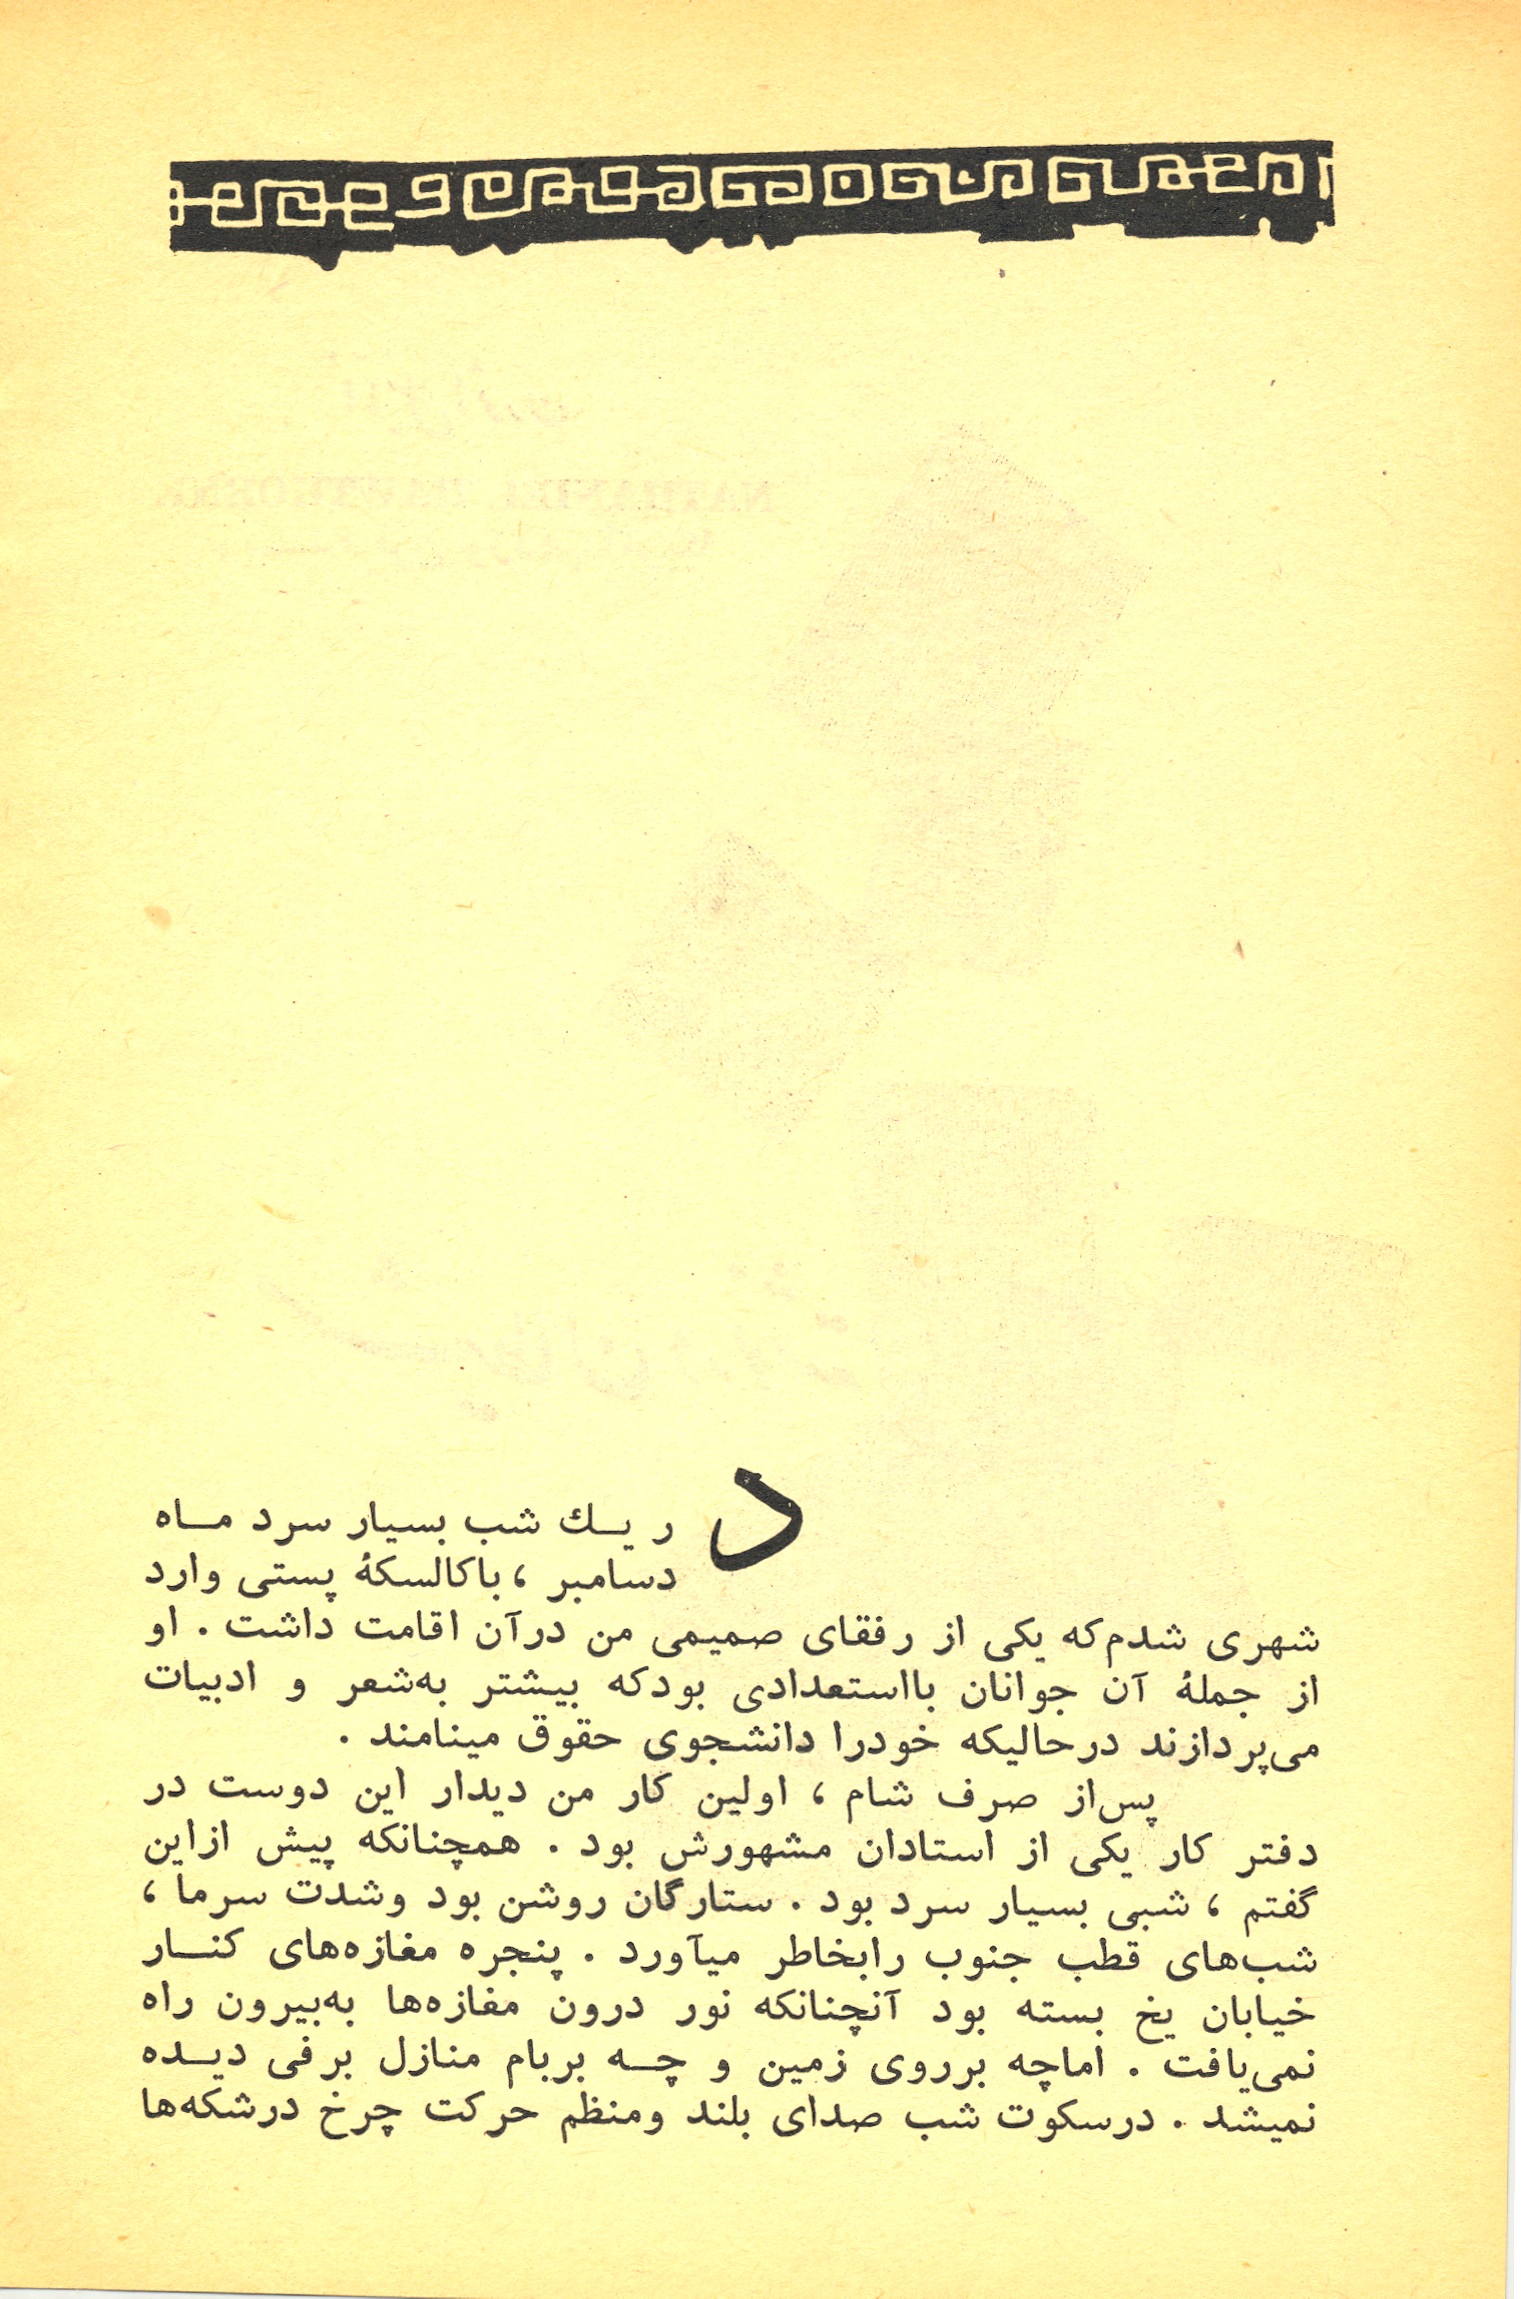 در یـك شب بسیار سرد مـاه
دسامبر ، باکالسکهٔ پستی وارد
شهری شدم‌که یکی از رفقای صمیمی من درآن اقامت داشت . او
از جملهٔ آن جوانان بااستعدادی بودکه بیشتر به‌شعر و ادبیات
می‌پردازند درحالیکه خودرا دانشجوی حقوق مینامند .
پس‌از صرف شام ، اولین کار من دیدار این دوست در
دفتر کار یکی از استادان مشهورش بود . همچنانکه پیش ازاین
گفتم ، شبی بسیار سرد بود . ستارگان روشن بود وشدت سرما ،
شب‌های قطب جنوب رابخاطر میآورد . پنجره مغازه‌های کنـار
خیابان یخ بسته بود آنچنانکه نور درون مغازه‌ها به‌بیرون راه
نمی‌یافت . اماچه برروی زمین و چـه بربام منازل برفی دیـده
نمیشد . درسکوت شب صدای بلند ومنظم حرکت چرخ درشکه‌ها